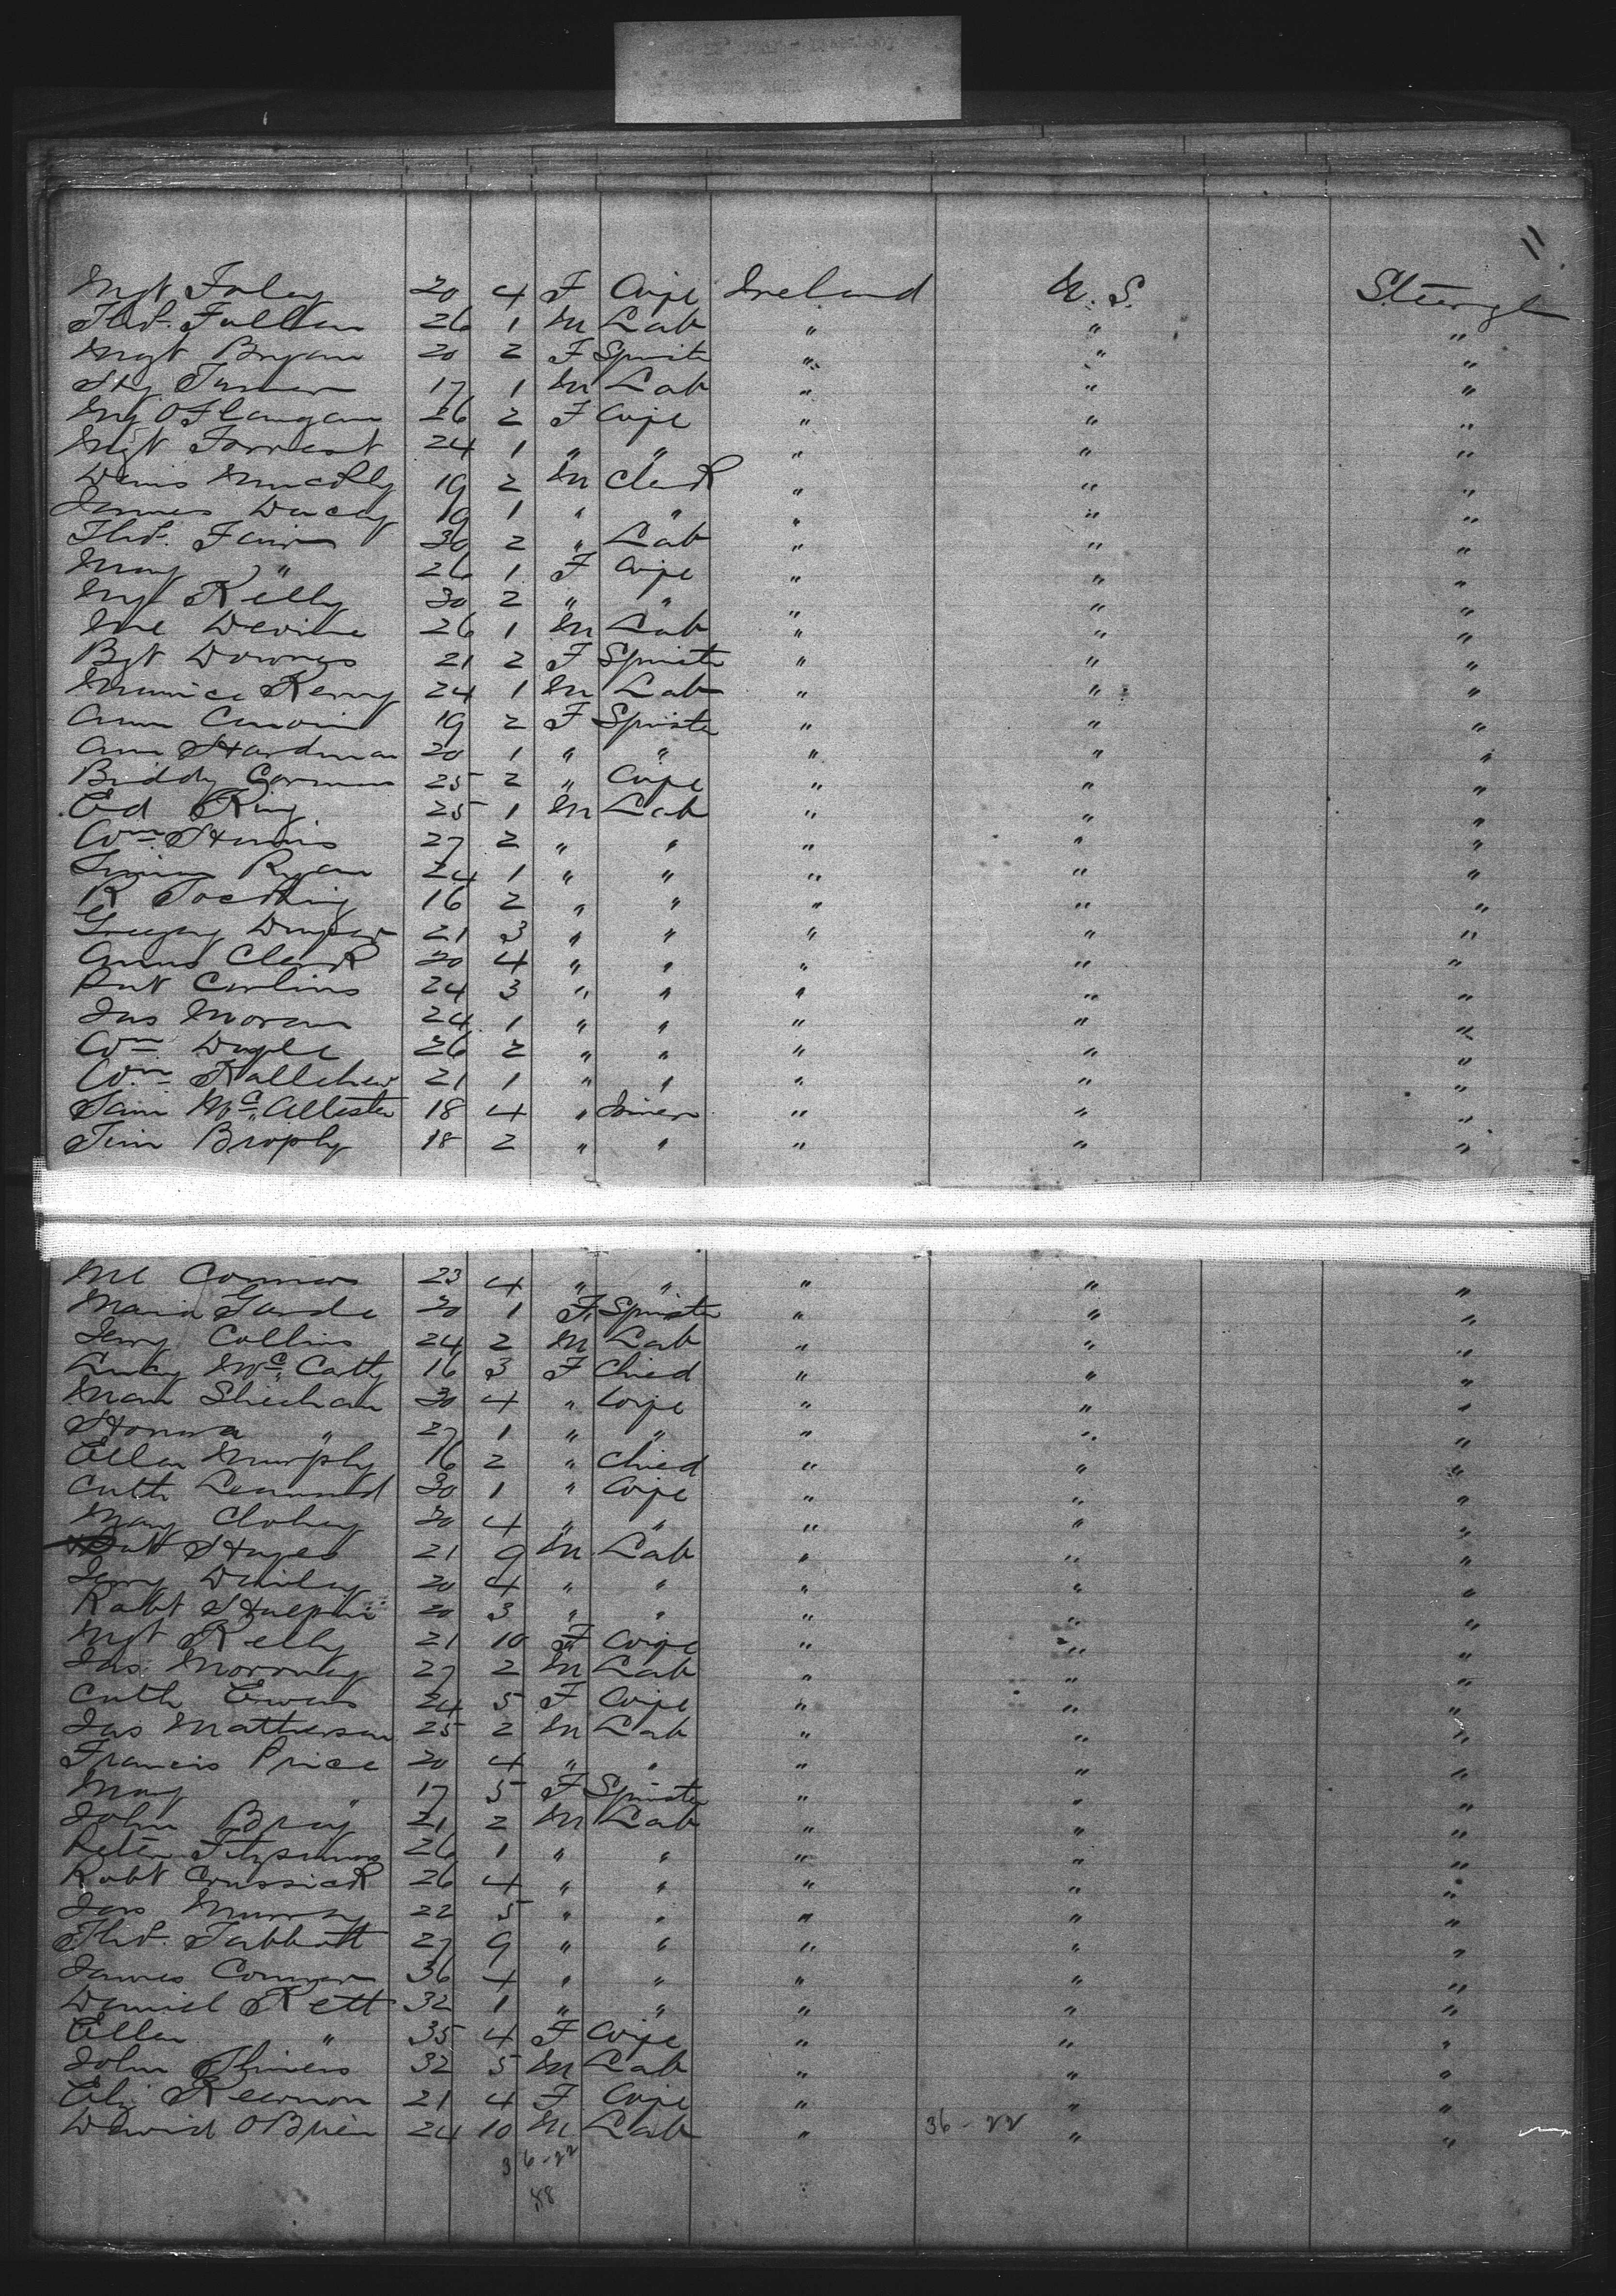 11
Mgt Foley 20 4 F Wife Ireland U.S. Steerage
Thos. Fallon 26 1 M Lab " " "
Mgt Bryan 20 2 F Spinste " " "
Hy Turner 17 1 M Lab " " "
Mg O'Flanigan 26 2 F Wife " " "
Mgt Forrest 24 1 " " " " "
Denis 19 2 M Clerk " " "
James Ducey 19 1 " " " " "
Thos. 30 2 " Lab " " "
Mary " 26 1 F Wife " " "
Mgt Kelly 30 2 " " " " "
Ml Devine 26 1 M Lab " " "
Bgt Downes 21 2 F Spinste " " "
Maurice Kenny 24 1 M Lab " " "
Ann 19 2 F Spinste " " "
Ann Hardman 20 1 " " " " "
Biddy Gorman 25 2 " Wife " " "
Ed King 25 1 M Lab " " "
Wm 27 2 " " " " "
Ryan 24 1 " " " " "
R 16 2 " " " " "
Gregory 21 3 " " " " "
Clark 20 4 " " " " "
Pat Carlins 24 3 " " " " "
Jas Moran 24 1 " " " " "
Wm 26 2 " " " " "
Wm 21 1 " " " " "
Sam McAllister 18 4 " Joiner " " "
Tim Brophy 18 2 " " " " "
Ml Connors 23 4 " " " " "
Maria 20 1 F Spinste " " "
Jerry Collins 24 2 M Lab " " "
McCatty 16 3 F Chied " " "
Sheehan 30 4 " Wife " " "
Honora " 27 1 " " " " "
Ellen Murphy 16 2 " Chied " " "
Cath Leonard 30 1 " Wife " " "
Mary Clohey 20 4 " " " " "
Patt Hayes 21 9 M Lab " " "
Jerry 20 4 " " " " "
Robt Halpin 20 3 " " " " "
Mgt Kelly 21 10 F Wife " " "
Jas 27 2 M Lab " " "
Cath Ewens 24 5 F Wife " " "
Jas Matherson 25 2 M Lab " " "
Francis Price 20 4 " " " " "
Mary " 17 5 F Spinste " " "
John Bray 21 2 M Lab " " "
Peter Fitzsimons 26 1 " " " " "
Robt Crussick 26 4 " " " " "
Jas Murray 22 5 " " " " "
Thos. Tabbott 27 9 " " " " "
James Connor 36 4 " " " " "
Daniel Kett 32 1 " " " " "
Ellen " 35 4 F Wife " " "
John 32 5 M Lab " " "
Eliz Kearnon 21 4 F Wife " " "
David O'Brien 24 10 M Lab " 36-22 " "
36-22
58